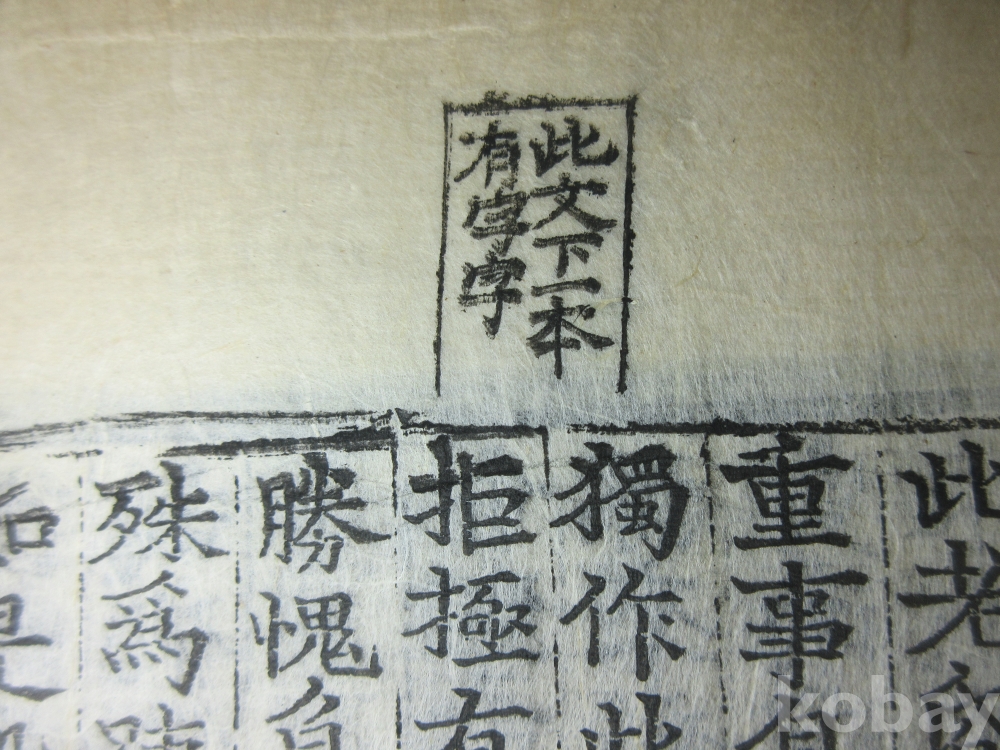 此文下一本
有字字
此老
重事
獨作此
拒極有
勝愧自
殊爲
zobay